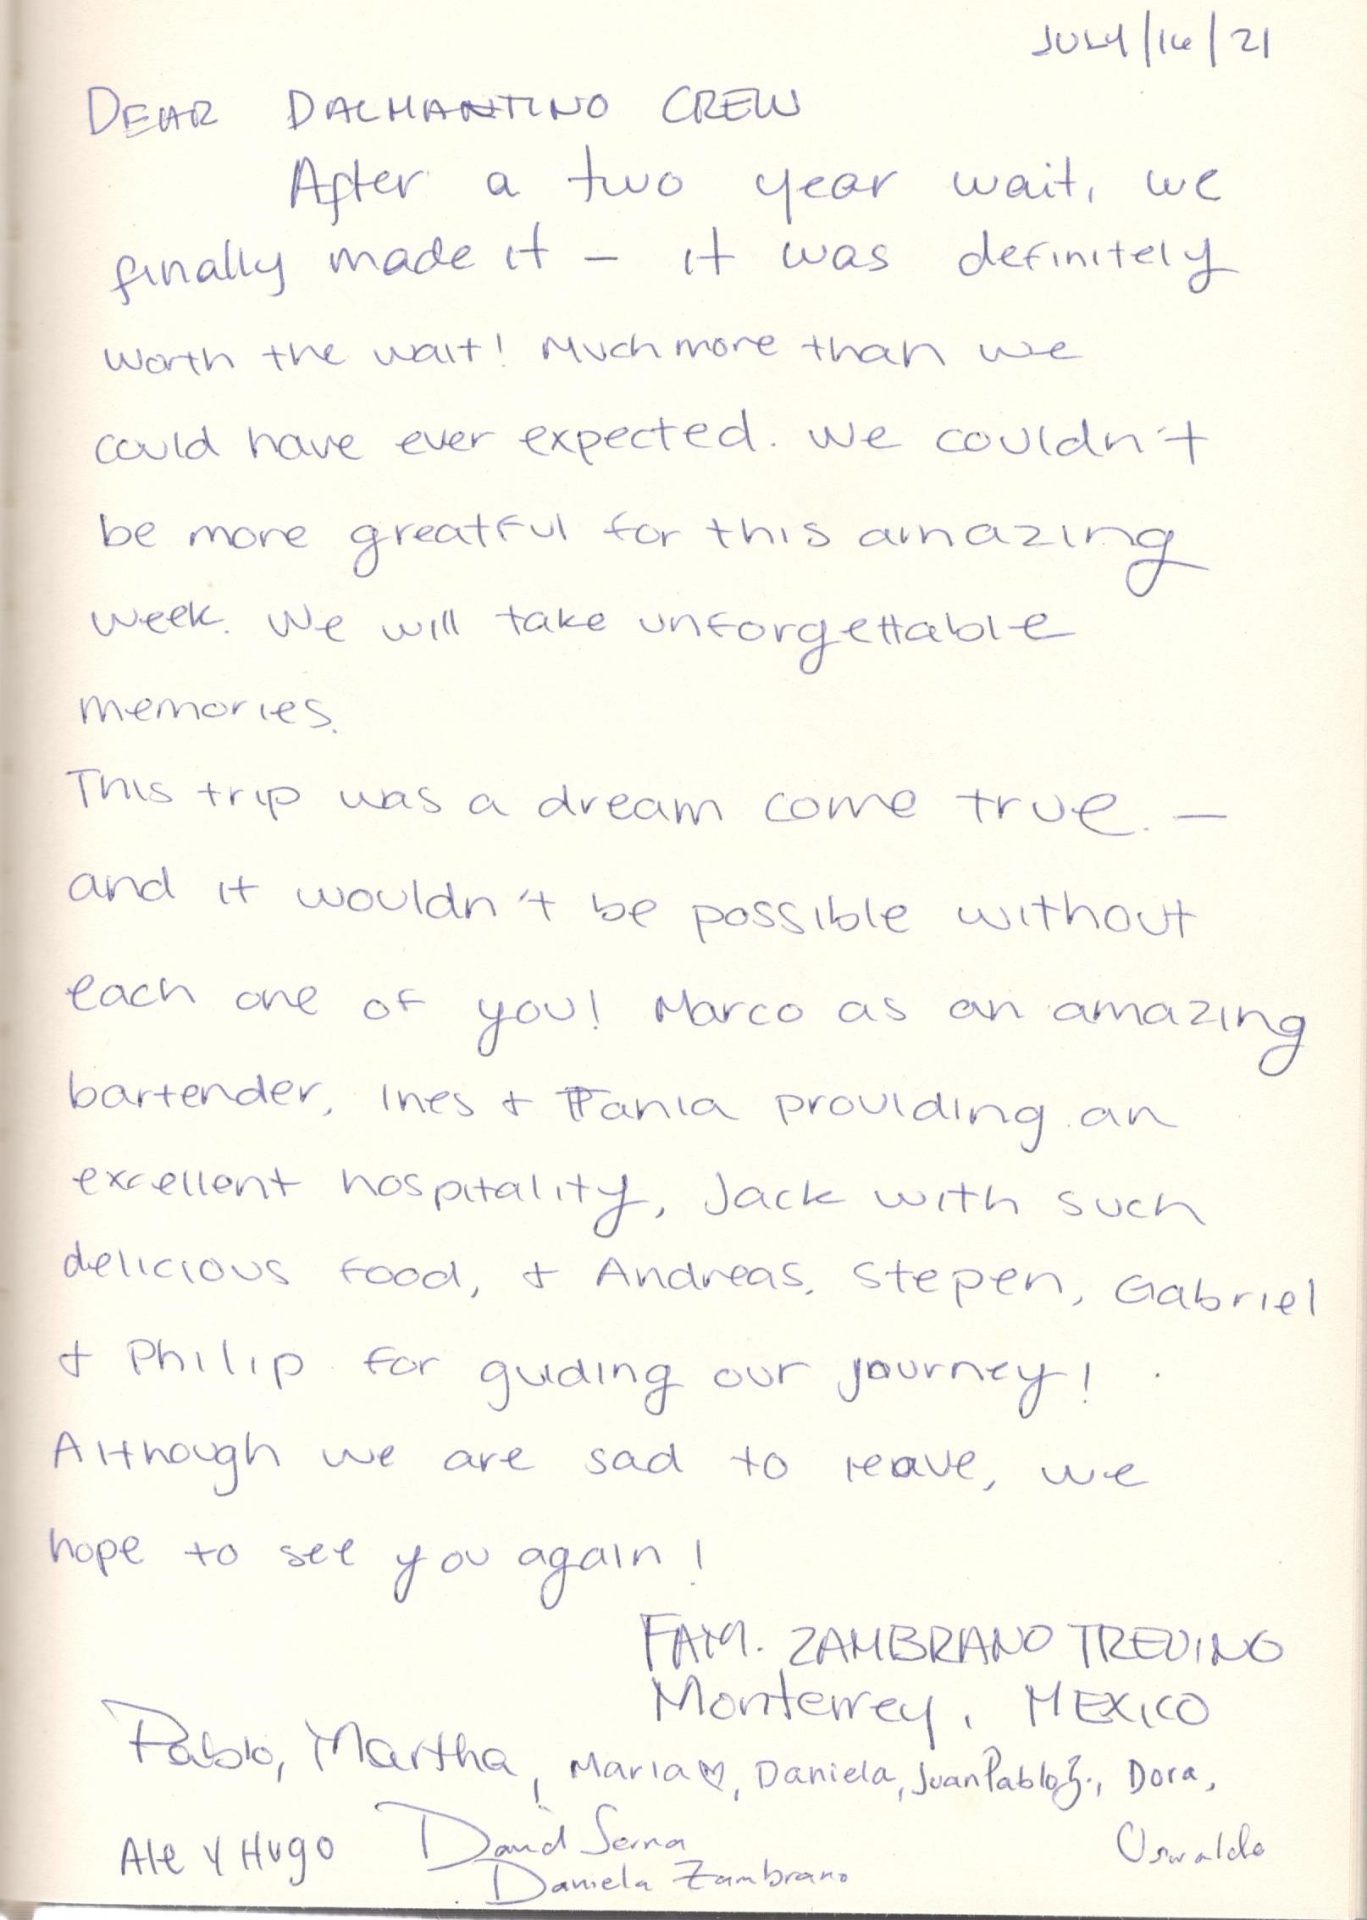 JULY/16/21
DEAR DALMANTINO CREW
After a two year wait, we
finally made it - it was definitely
worth the wait! Much more than we
could have ever expected. We couldn't
be more greatful for this amazing
week. We will take unforgettable
memories.
This trip was a dream come true. -
and it wouldn't be possible without
each one of you! Marco as an amazing
bartender, Ines + Tania providing an
excellent hospitality, Jack with such
delicious food, + Andreas, Stepen, Gabriel
+ Philip for guiding our journey!
Although we are sad to leave, we
hope to see you again!
FAM. ZAMBRANO TREVINO
Monterrey, MEXICO
Pablo, Martha, Maria ♡, Daniela, Juan Pablo Z., Dora,
Ale y Hugo David Serna Oswaldo
Daniela Zambrano